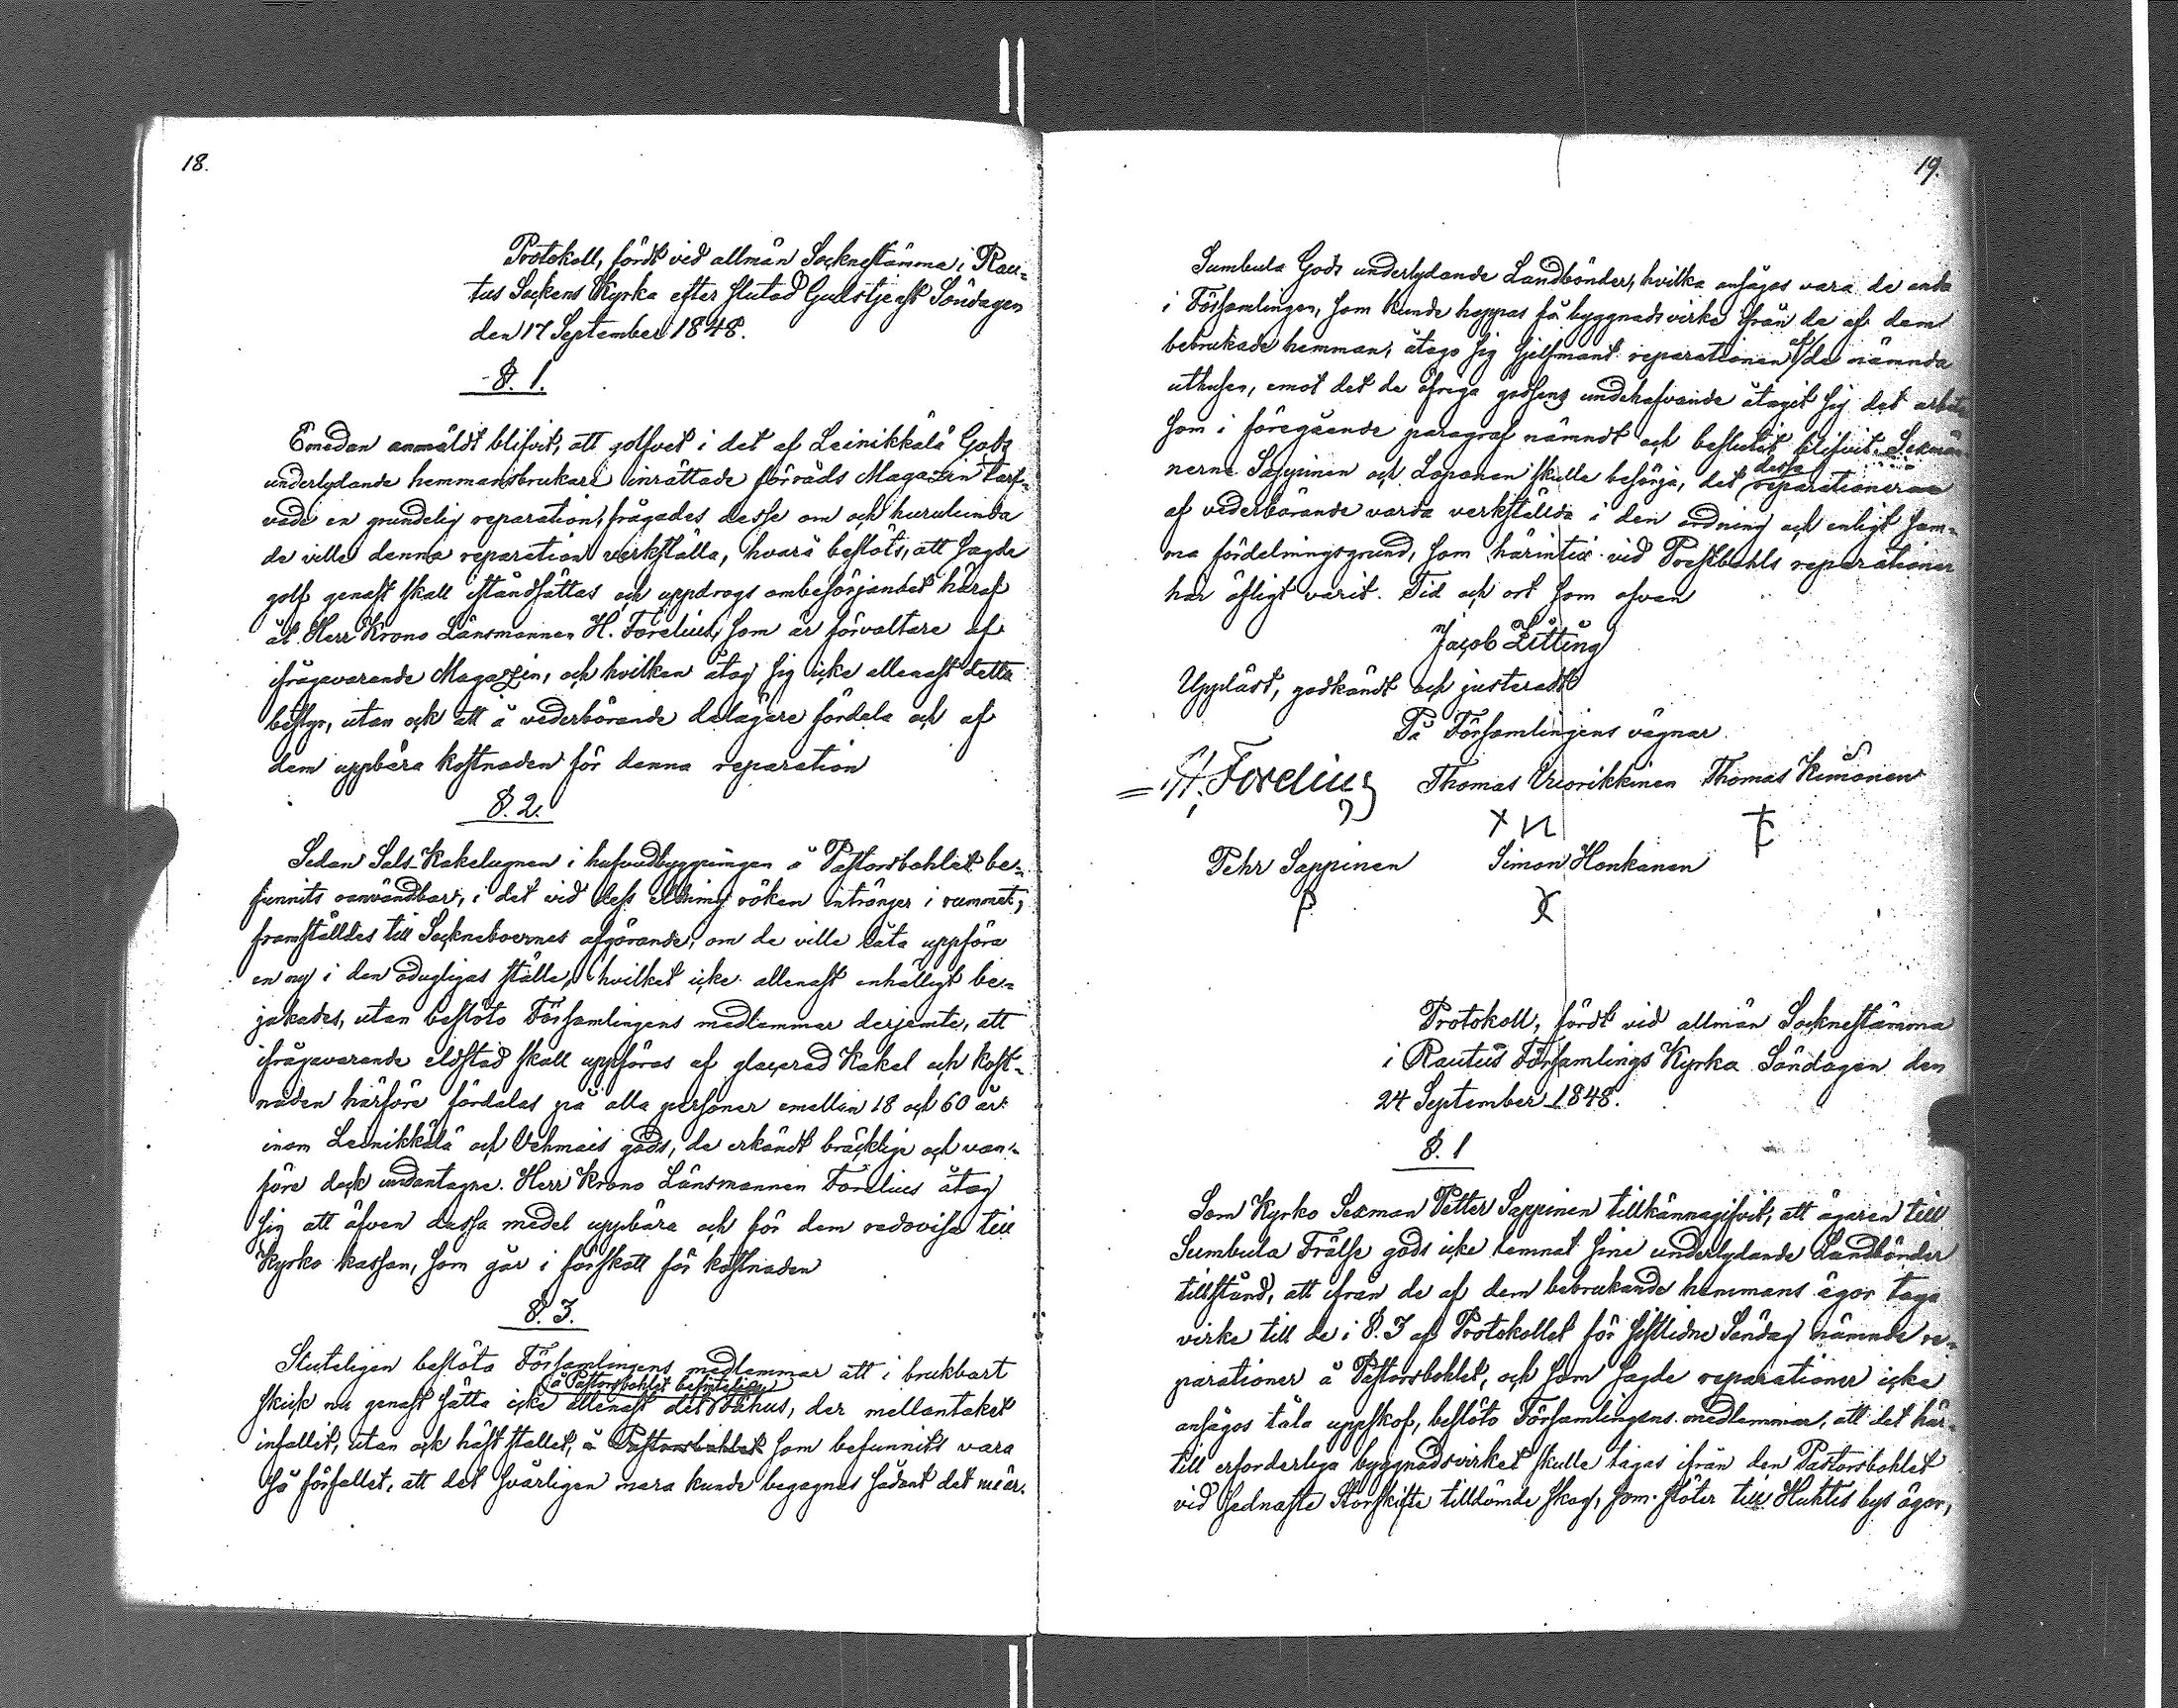 18.
Protokoll, fördt vid allmän Sockenstämma i Rau-
tus Sockens Kyrka efter slutad Gudstjenst Söndagen
den 17 September 1848.
§. 1.
Emedan anmäldt blifvit, att golfvet i det af Leinikkälä Gods
underlydande hemmansbrukare inrättade förråds Magazin tarf-
vade en grundelig reparation, frågades desse om och hurulunda
de ville denna reparation verkställa, hvarå beslöts, att sagde
golf genast skall iståndsättas och uppdrogs ombesörjandet häraf
åt Herr Krono Länsmannen H. Forelius, som är förvaltare af
ifrågavarande Magazin, och hvilken åtog sig icke allenast detta
bestyr, utan ock att å vederbörande delägare fördela och af
dem uppbära kostnaden för denna reparation
§. 2.
Sedan Sals Kakelugnen i hufvudbyggningen å Pastorsbohlet be-
funnits oanvändbar, i det vid dess eldning röken intränger i rummet,
framställdes till Sockneboernes afgörande, om de ville låta uppföra
en ny i den odugligas ställe, hvilket icke allenast enhälligt be-
jakades, utan beslöto Församlingens medlemmar derjemte, att
ifrågavarande eldstad skall uppföras af glacerad Kakel och kost-
naden härföre fördelas på alla personer emellan 18 och 60 år
inom Leinikkälä och Vehmais gods, de erkändt bräcklige och van-
före dock undantagne. Herr Krono Länsmannen Forelius åtog
sig att äfven dessa medel uppbära och för dem redovisa till
Kyrko kassan, som går i förskott för kostnaden
§. 3.
Sluteligen beslöto Församlingens medlemmar att i brukbart
å Pastorsbohlet befinteliga
skick nu genast sätta icke allenast det Fähus, der mellantaket
infallit, utan ock häst stallet, å Pastorsbohlet som befunnits vara
så förfallet, att det svårligen mera kunde begagnas sådant det nu är.
19.
Sumbula Gods underlydande Landbönder, hvilka ansågos vara de enda
i Församlingen, som kunde hoppas få byggnadsvirke från de af dem
bebrukade hemman, åtogo sig sjelfmant reparationen af de nämnda
uthusen, emot det de öfriga godsens underhafvande åtagit sig det arbete
som i föregående paragraf nämndt och beslutit blifvit. Sexmän-
nerne Sappinen och Loponen skulle besörja, det dessa reparationerne
af vederbörande varda verkställda i den ordning och enligt sam-
ma fördelningsgrund, som härintill vid Prestbohls reparationer
har öfligt varit. Tid och ort som ofvan
Jacob Zitting
Uppläst, godkändt och justeradt
På Församlingens vägnar
H. Forelius Thomas Vuorikkinen Thomas Kimonen
Pehr Sappinen Simon Honkanen
Protokoll, fördt vid allmän Sockenstämma
i Rautus Församlings Kyrka Söndagen den
24 September 1848.
§. 1
Som Kyrko Sexman Petter Sappinen tillkännagifvit, att ägaren till
Sumbula Frälse gods icke lemnat sine underlydande Landbönder
tillstånd, att ifrån de af dem bebrukande hemmans ägor taga
virke till de i §. 3 af Protokollet för sistlidne Söndag nämnde re-
parationer å Pastorsbohlet, och som sagde reparationer icke
ansågos tåla uppskof, beslöto Församlingens medlemmar, att det här-
till erforderliga byggnadsvirket skulle tagas ifrån den Pastorsbohlet
vid sednaste Storskifte tilldömde skog, som stöter till Huhtis bys ägor,